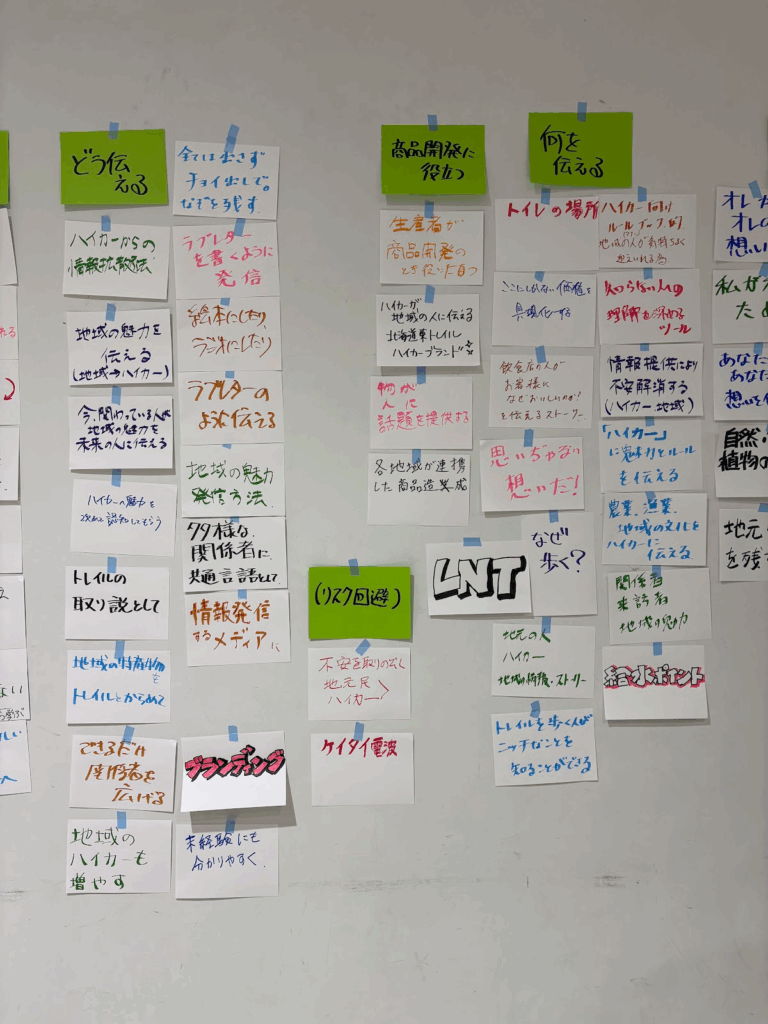 どう伝
える
ハイカーからの
情報拡散法
地域の魅力を
伝える
(地域→ハイカー)
今、関わっている人が
地域の魅力を
未来の人に伝える
ハイカーの魅力を
認知してもらう
トレイルの
取り説として
地域の特産物も
トレイルとからめて
できるだけ
関係者を
広げる
地域の
ハイカーも
増やす
全ては出さず
チョイ出しで。
なぞを残す
ラブレター
を書くように
発信
絵本にしたり
ラジオにしたり
ラブレターの
ように伝える
地域の魅力
発信方法
多様な
関係者に
共通言語として
情報発信
するメディアに
ブランディング
未経験にも
分かりやすく
商品開発に
役立つ
生産者が
商品開発の
とき役に立つ
ハイカーが
地域の人に伝える
北海道東トレイル
ハイカーブランド
物が
人に
話題を提供する
各地域が連携
した商品造成
(リスク回避)
不安を取りのぞく
地元民
ハイカー
ケイタイ電波
何を
伝える
トイレの場所
ここにしかない価値を
具現化する
飲食店の人が
お客様に
なぜおいしいのか?
を伝えるストーリー
思いぢゃない
想いだ!
LNT
なぜ
歩く?
地元の人
ハイカー
地域の術・ストーリー
トレイルを歩く人が
ニッチなことを
知ることができる
ハイカー向け
ルールブック的
地域の人が気持ちよく
迎えいれる為
知らない人の
理解を深める
ツール
情報提供により
不安解消する
(ハイカー 地域)
「ハイカー」
に魅力とルール
を伝える
農業、漁業、
地域の文化を
ハイカーに
伝える
関係者
来訪者
地域の魅力
給水ポイント
オレ
オレの
想い
私が
ため
あなた
あなた
想いを
自然・
植物の
地元
を残す